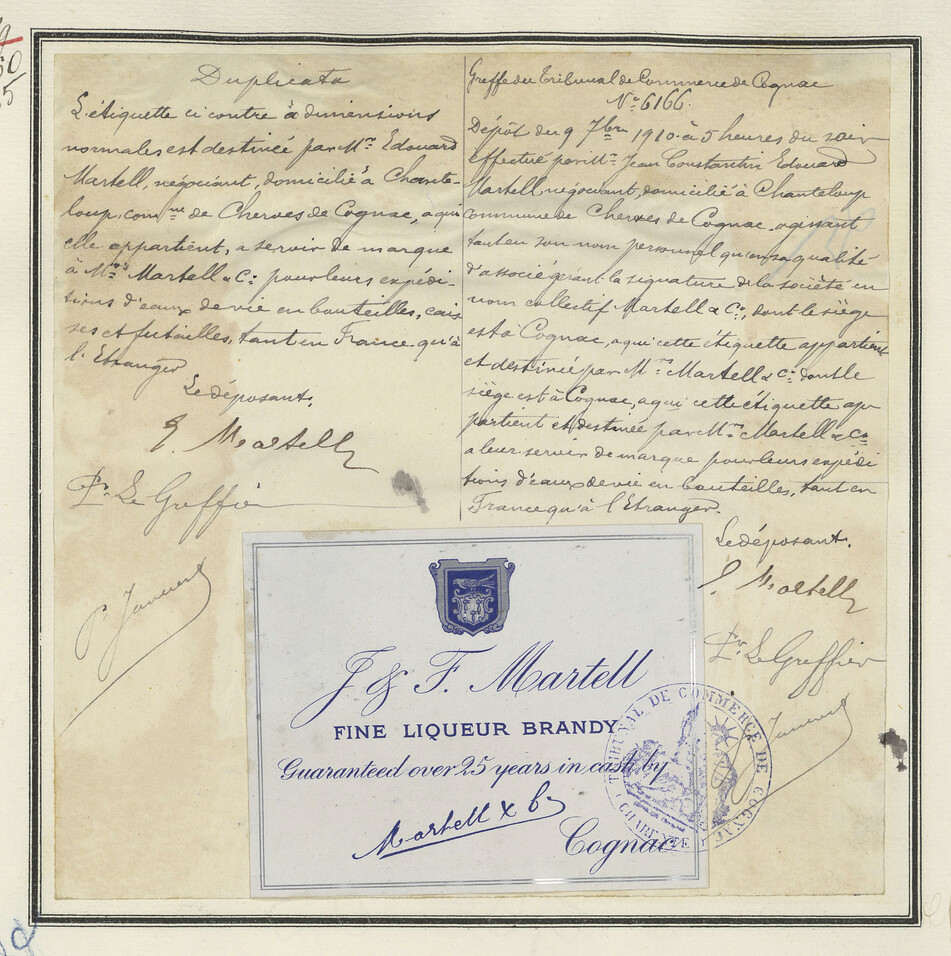 Duplicata
L'étiquette ci contre à dimensions
normales est destinée par Mr. Edouard
Martell, négociant, domicilié à Chante-
loup, comne de Cherves de Cognac, a qui
elle appartient, a servir de marque
à Mrs Martell & Co pour leurs expédi-
tions d'eaux de vie en bouteilles, cais
ses et futailles, tant en France qu'à
l'Etranger
Le déposant,
E. Martell
Pr Le Greffier
Greffe du Tribunal de Commerce de Cognac
No 6166.
Dépôt du 9 7bre 1910 à 5 heures du soir
effectué par Mr. Jean Constantin Edouard
Martell, négociant, domicilié à Chanteloup
commune de Cherves de Cognac, agissant
tant en son nom personnel qu'en sa qualité
d'associé gérant la signature de la société en
nom collectif Martell & Co, dont le siège
est à Cognac, a qui cette étiquette appartient
et destinée par Mrs Martell & Co dont le
siège est à Cognac, a qui cette étiquette ap-
partient et destinée par Mrs Martell & Co
a leur servir de marque pour leurs expédi
tions d'eaux de vie en bouteilles, tant en
France qu'à l'Etranger.
Le déposant,
E. Martell
Pr Le Greffier
J & F. Martell
FINE LIQUEUR BRANDY
Guaranteed over 25 years in cask by
Martell & Co
Cognac
TRIBUNAL DE COMMERCE DE COGNAC
(CHARENTE)